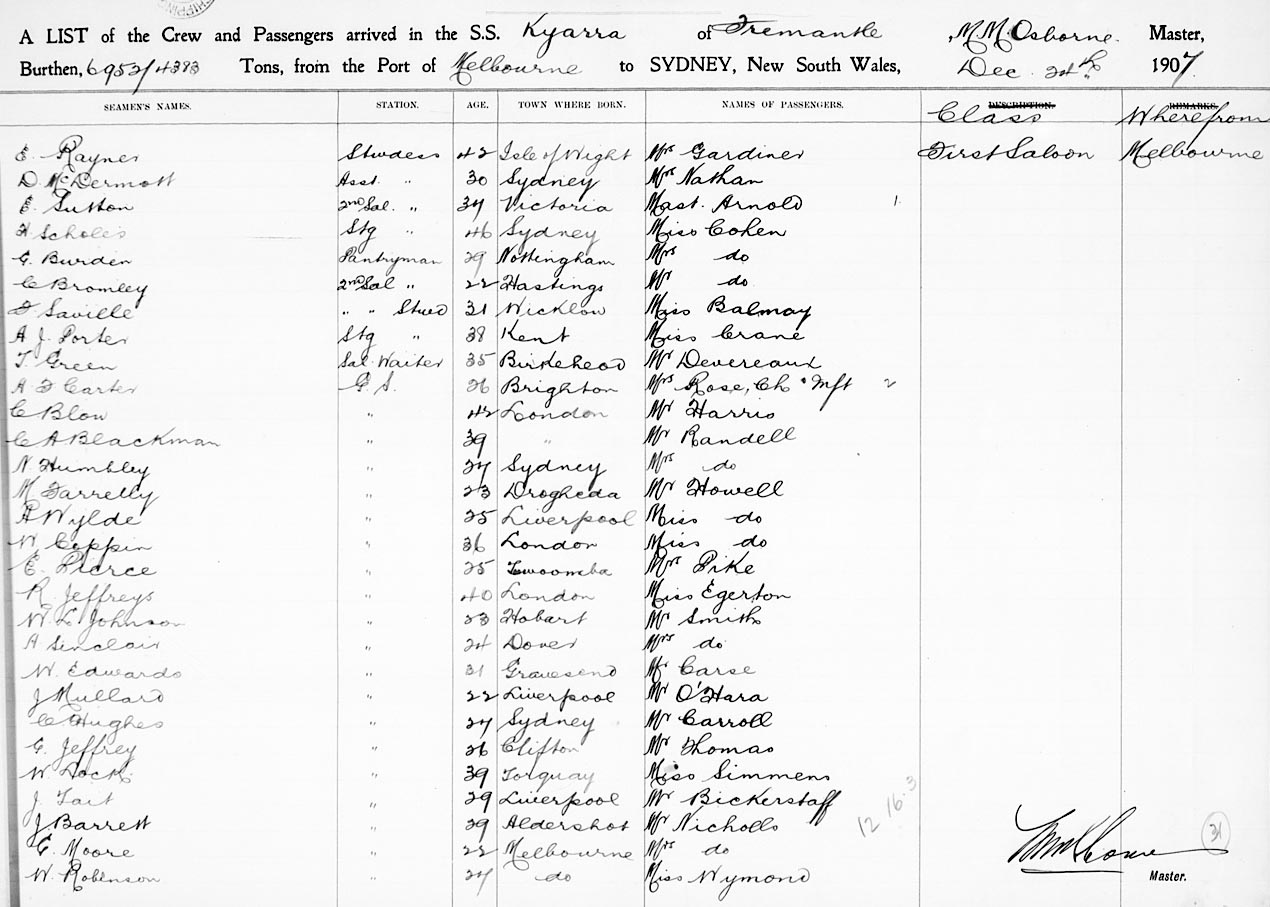 A LIST of the Crew and Passengers arrived in the S.S. Kyarra of Fremantle, M. M. Osborne. Master,
Burthen, 6953/4383 Tons, from the Port of Melbourne to SYDNEY, New South Wales, Dec. 24th 1907.
SEAMEN'S NAMES. STATION. AGE. TOWN WHERE BORN. NAMES OF PASSENGERS. DESCRIPTION. REMARKS.
Class Where from
E. Rayner Stwdess 42 Isle of Wight Mrs Gardiner First Saloon Melbourne
D. McDermott Asst. " 30 Sydney Mrs Nathan
E. Sutton 2nd Sal. " 34 Victoria Mast. Arnold 1
Scholes Stg " 46 Sydney Miss Cohen
G. Burden Pantryman 29 Nottingham Mrs do
C Bromley 2nd Sal " 22 Hastings Mr do
F Saville " " Stwd 31 Wicklow Miss Balmay
A J. Porter Stg " 38 Kent Miss Crane
T. Green Sal. Waiter 35 Birkehead Mr Devereaux
A F Carter G. S. 26 Brighton Mrs Rose, Ch & Inft 2
C Blow " 42 London Mr Harris
C A Blackman " 39 " Mr Randell
N. Humbley " 27 Sydney Mrs do
M Farrelly " 23 Drogheda Mr Howell
A Wylde " 25 Liverpool Miss do
W. Coppin " 36 London Miss do
E. Pierce " 25 Twoomba Mrs Pike
R. Jeffreys " 40 London Miss Egerton
W. L. Johnson " 23 Hobart Mr Smith
A Sinclair " 24 Dover Mrs do
W. Edwards " 31 Gravesend Mr Carse
J Mullard " 22 Liverpool Mr O'Hara
C Hughes " 27 Sydney Mr Carroll
G. Jeffrey " 26 Clifton Mr Thomas
W. Lock. " 39 Torquay Miss Simmens
J. Tait " 29 Liverpool Mr Bickerstaff
J Barrett " 29 Aldershot Mr Nicholls 12 16.3
G. Moore " 22 Melbourne Mrs do 31
W. Robinson " 27 do Miss Wymond Master.